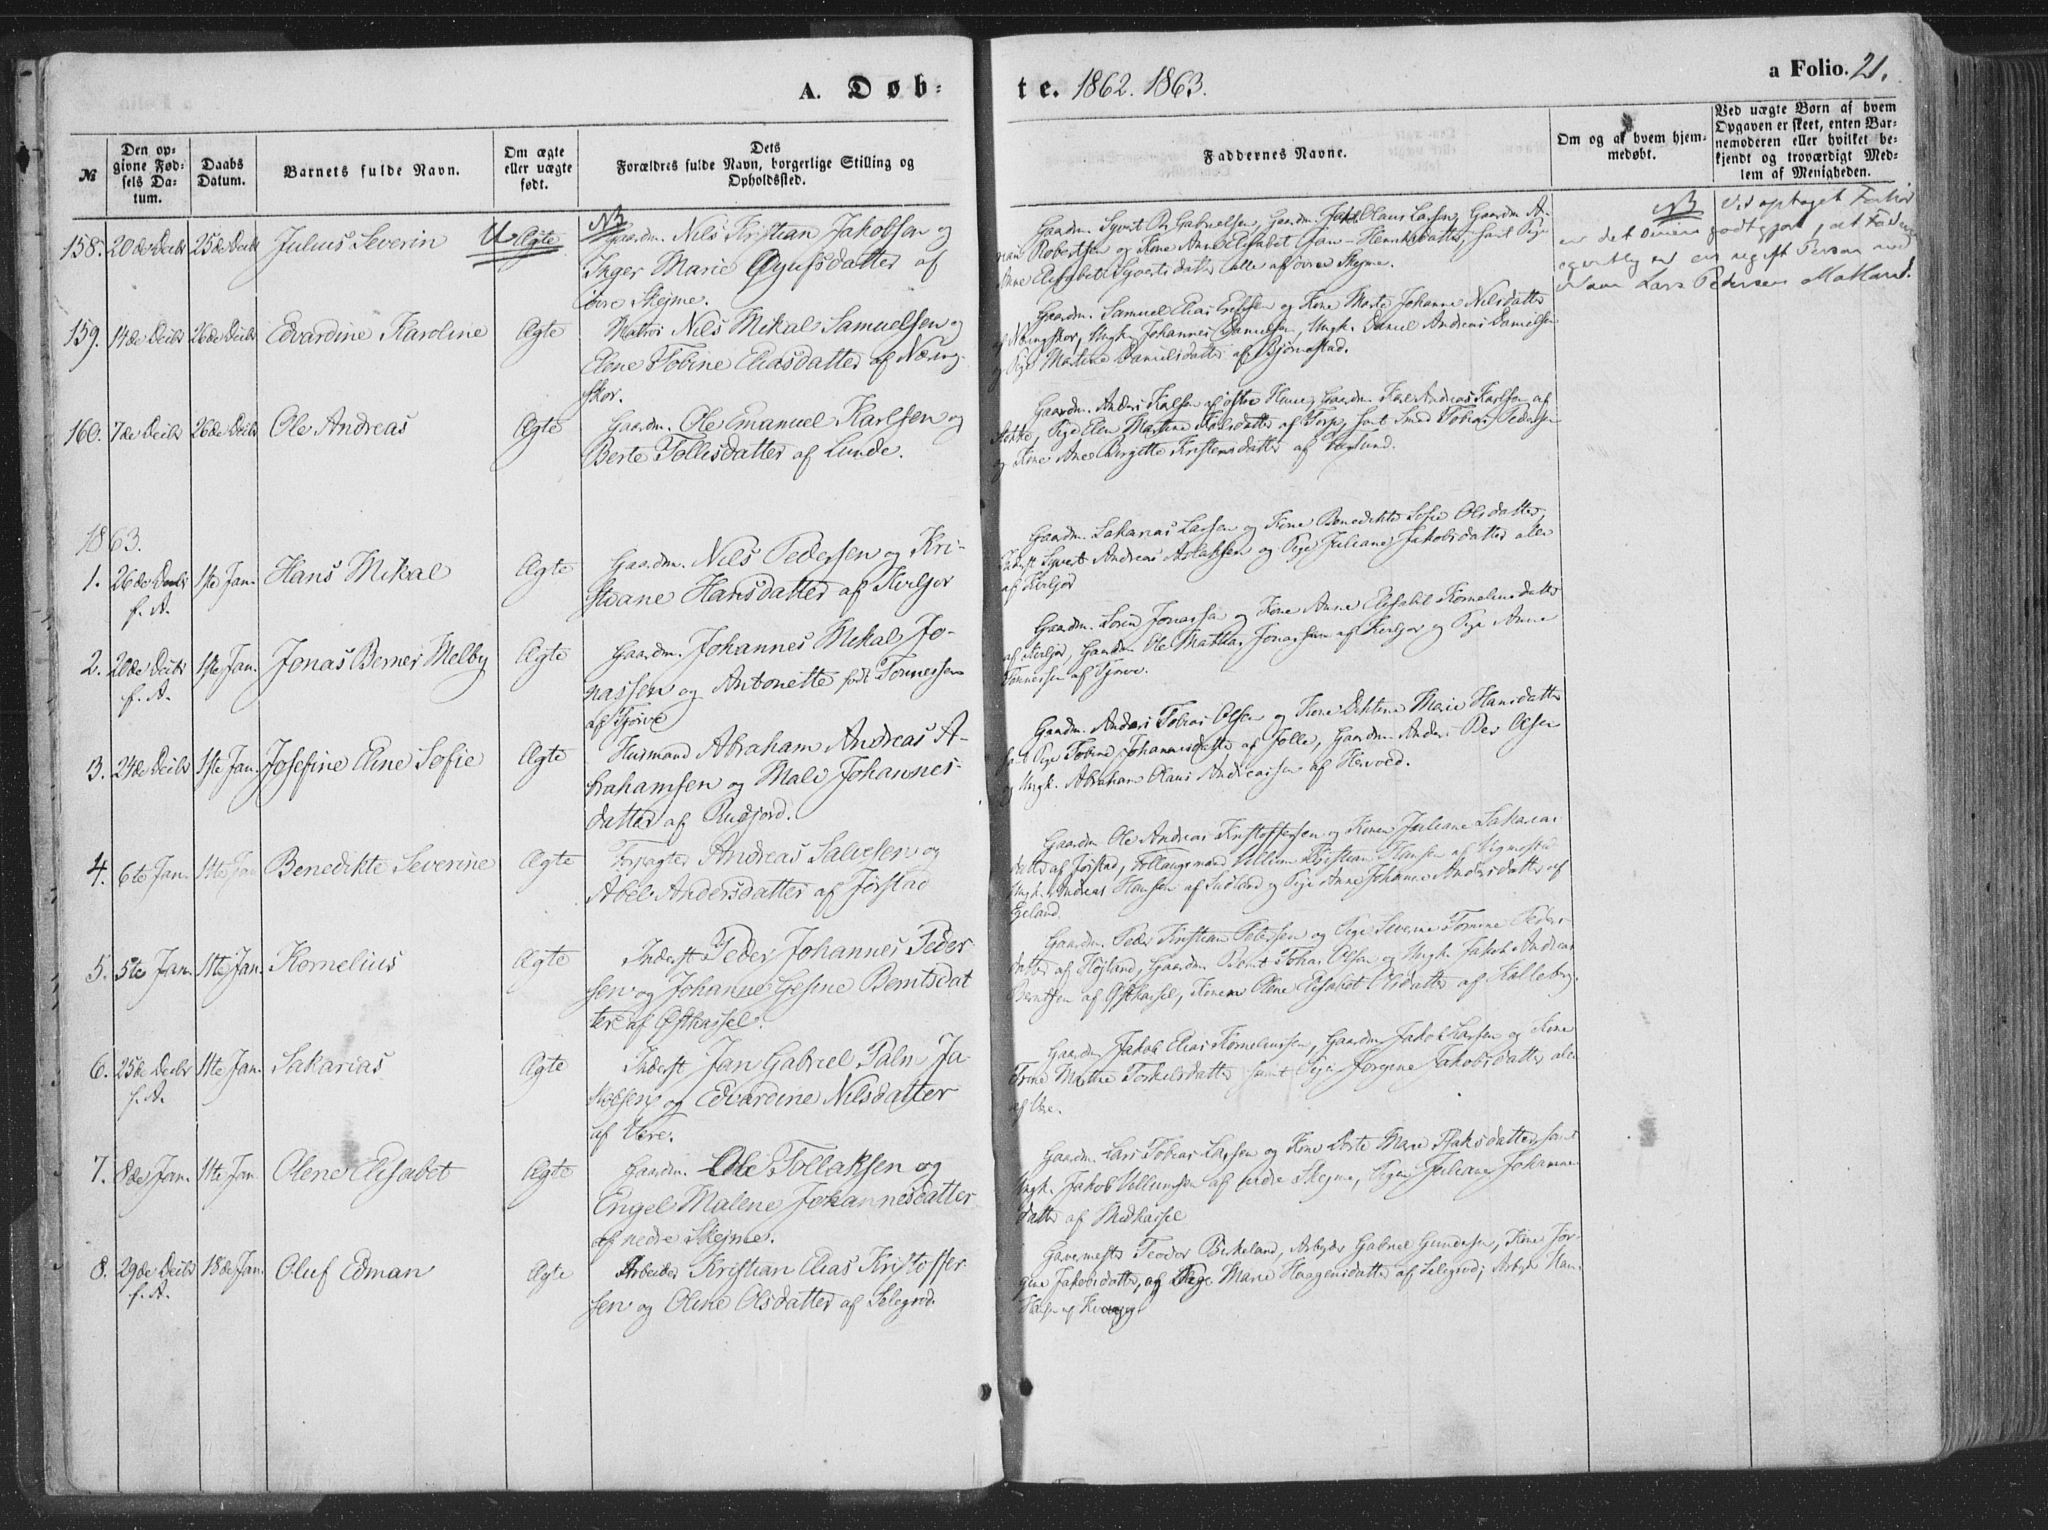 A. Døb-
te. 1862. 1863.
a Folio. 21.
№
Den op-
givne Fød-
sels Da-
tum.
Daabs
Datum.
Barnets fulde Navn.
Om ægte
eller uægte
født.
Dets
Forældres fulde Navn, borgerlige Stilling og
Opholdssted.
Faddernes Navne.
Om og af hvem hjem-
medøbt.
Ved uægte Børn af hvem
Opgaven er skeet, enten Bar-
nemoderen eller hvilket be-
kjendt og troværdigt Med-
lem af Menigheden.
158. 20de Decbr 25de Decbr Julius Severin UÆgte NB
Gaardm. Nils Kristian Jakobsen og
Inger Marie Gyufsdatter af
øvre Skejme.
Gaardm. Syvert Pr. Gabrielsen, Gaardm. Olaus Larsen, Gaardm. A-
Robertsen og Kone Anne Elisabet Jan-Henriksdatter, samt Pige
Anne Elisabet Syvertsdatter alle af øvre Skejme.
NB Ved optaget Forhør
er det senere godtgjort, at Faderen
egentlig er en ugift Person ved
Navn Lars Pedersen Matland.
159. 14de Decbr 26de Decbr Edvardine Karoline Ægte
Matros Nils Mikal Samuelsen og
Elene Tobine Eliasdatter af Næsing-
skor.
Gaardm. Samuel Elias Eriksen og Kone Marte Johanne Nilsdatter
af Næsingskor, Ungk. Johannes Danielsen, Ungk. Daniel Andreas Danielsen
og Pige Martine Danielsdatter af Bjørnestad.
160. 7de Decbr 26de Decbr Ole Andreas Ægte
Gaardm. Ole Emanuel Karlsen og
Berte Tollisdatter af Lunde.
Gaardm. Anders Karlsen af østre Hauge, Gaardm. Karl Andreas Karlsen af
Stokke, Pige Elen Martine Karlsdatter af Torp, samt Smed Tobias Pedersen
og Kone Ane Birgitte Kristensdatter af
1863.
1. 26de Decbr 1ste Jan. Hans Mikal Ægte
f. A.
Gaardm. Nils Pedersen og Kri-
stiane Hansdatter af Kviljor
Gaardm. Sakarias Larsen og Kone Benedikte Sofie Olsdatter,
Inderst Syvert Andreas Aslaksen og Pige Juliane Jakobsdatter alle
af Kviljor
2. 20de Decbr 1ste Jan. Jonas Berner Melby Ægte
f. A.
Gaardm. Johannes Mikal Jo-
nassen og Antonette født Tønnessen
af Tjørve
Gaardm. Søren Jonassen og Kone Anne Elisabet Korneliusdatter
af Kviljor, Gaardm. Ole Mathias Jonassen af Kviljor og Pige Anne
Tønnessen af Tjørve.
3. 24de Decbr 1ste Jan. Josefine Eline Sofie Ægte
Husmand Abraham Andreas A-
brahamsen og Male Johannes-
datter af Rudjord.
Gaardm. Anders Tobias Olsen og Kone Marie Hansdatter
samt Pige Tobine Johannesdatter af Jolle, Gaardm. Anders Per Olsen
og Ungk. Abraham Olaus Andreassen af Hervold.
4. 6te Jan. 11te Jan Benedikte Severine Ægte
Forpagter Andreas Salvesen og
Abel Andersdatter af Jørstad
Gaardm Ole Andreas Kristoffersen og Konen Juliane Sakarias
datter af Jørstad, Føllaugsmand Vellum Kristian Hansen af Vigmostad
Ungk. Andreas Hansen af Sudland og Pige Anne Johanne Andersdatter af
Egeland.
5. 5te Jan. 11te Jan. Kornelius Ægte
Inderst Peder Johannes Peder-
sen og Johanne Gesine Berntsdat
ter af Østhassel.
Gaardm. Peder Kristian Petersen og Pige Severine Tomine Peders-
datter af Højland, Gaardm. Bernt Tobias Olsen og Ungk. Jakob Andreas
Berntsen af Østhassel, Konen Olene Elisabet Olsdatter af Kalleberg.
6. 25de Decbr 11te Jan. Sakarias Ægte
f. A.
Inderst Jan Gabriel Palm Ja-
kobsen og Edvardine Nilsdatter
af Vere.
Gaardm Jakob Elias Korneliussen, Gaardm Jakob Larsen og Kone
Trine Marthe Torkelsdatter samt Pige Jørgine Jakobsdatter alle
af Vere.
7. 8de Jan. 11te Jan. Olene Elisabet Ægte
Gaardm. Ole Tollaksen og
Engel Malene Johannesdatter
af nedre Skejme.
Gaardm. Lars Tobias Larsen og Kone Dorte Marie Isaksdatter, samt
Ungk. Jakob Vellumsen af nedre Skejme, Pigen Juliane Johannes-
datter af Midhassel
8. 29de Decbr 18de Jan. Oluf Edman Ægte
f. A.
Arbeider Kristian Elias Kristoffer-
sen og Oline Olsdatter af Selegrød.
Garvermester Teodor Birkeland, Arbejder Gabriel Gundersen, Kone Jør-
gine Jakobsdatter, og Pige Marie Haagensdatter af Selegrød, Arbejder Hans
Hansen af Kvavig.